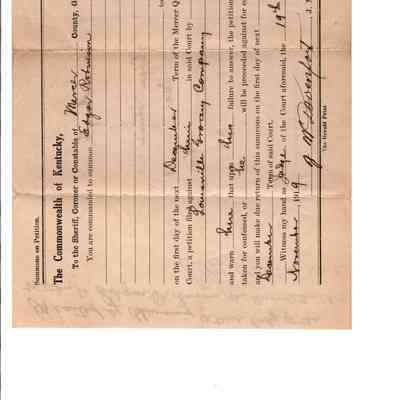 Summons on Petition.
The Commonwealth of Kentucky,
To the Sheriff, Coroner or Constable of Mercer County, G
You are commanded to summon Edgar Robinson
to
on the first day of the next December Term of the Mercer Q
Court, a petition filed against him in said Court by
Louisville Grocery Company
and warn him that upon his failure to answer, the petition
taken for confessed, or he will be proceeded against for
and you will make due return of this summons on the first day of next
December Term of said Court.
Witness my hand as Judge of the Court aforesaid, the 19th
November 1919
J W Davenport J.
The Herald Print